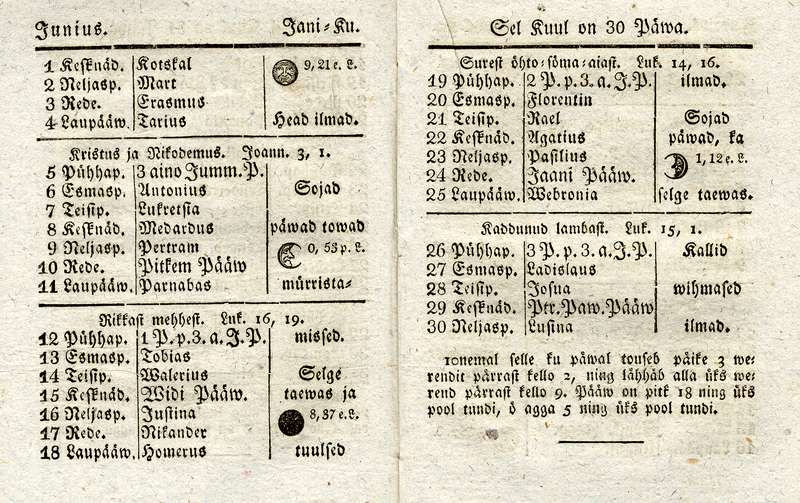 Junius. Jani-Ku.
1 Kesknäd. Kotskal 9, 21 e. L.
2 Neljasp. Mart
3 Rede. Erasmus
4 Laupääw. Tarius Head ilmad.
Kristus ja Nikodemus. Joann. 3, 1.
5 Pühhap. 3 aino Jumm. P.
6 Esmasp. Antonius Sojad
7 Teisip. Lukretsia
8 Kesknäd. Medardus päwad towad
9 Neljasp. Pertram 0, 53 p. L.
10 Rede. Pitkem Pääw
11 Laupääw. Parnabas mürrista-
Rikkast mehhest. Luk. 16, 19.
12 Pühhap. 1 P. p. 3. a. J. P. missed.
13 Esmasp. Tobias
14 Teisip. Walerius Selge
15 Kesknäd. Widi Pääw. taewas ja
16 Neljasp. Justina 8, 37 e. L.
17 Rede. Nikander
18 Laupääw. Homerus tuulsed
Sel Kuul on 30 Päwa.
Surest öhto-söma-aiast. Luk. 14, 16.
19 Pühhap. 2 P. p. 3. a. J. P. ilmad.
20 Esmasp. Florentin
21 Teisip. Rael Sojad
22 Kesknäd. Agatius päwad, ka
23 Neljasp. Pasilius 1, 12 e. L.
24 Rede. Jaani Pääw.
25 Laupääw. Webronia selge taewas.
Kaddunud lambast. Luk. 15, 1.
26 Pühhap. 3 P. p. 3. a. J. P. Kallid
27 Esmasp. Ladislaus
28 Teisip. Josua wihmased
29 Kesknäd. Ptr. Paw. Pääw
30 Neljasp. Lusina ilmad.
10nemal selle ku päwal touseb päike 3 we-
rendit pärrast kello 2, ning lähhäb alla üks we-
rend pärrast kello 9. Pääw on pitk 18 ning üks
pool tundi, ö agga 5 ning üks pool tundi.